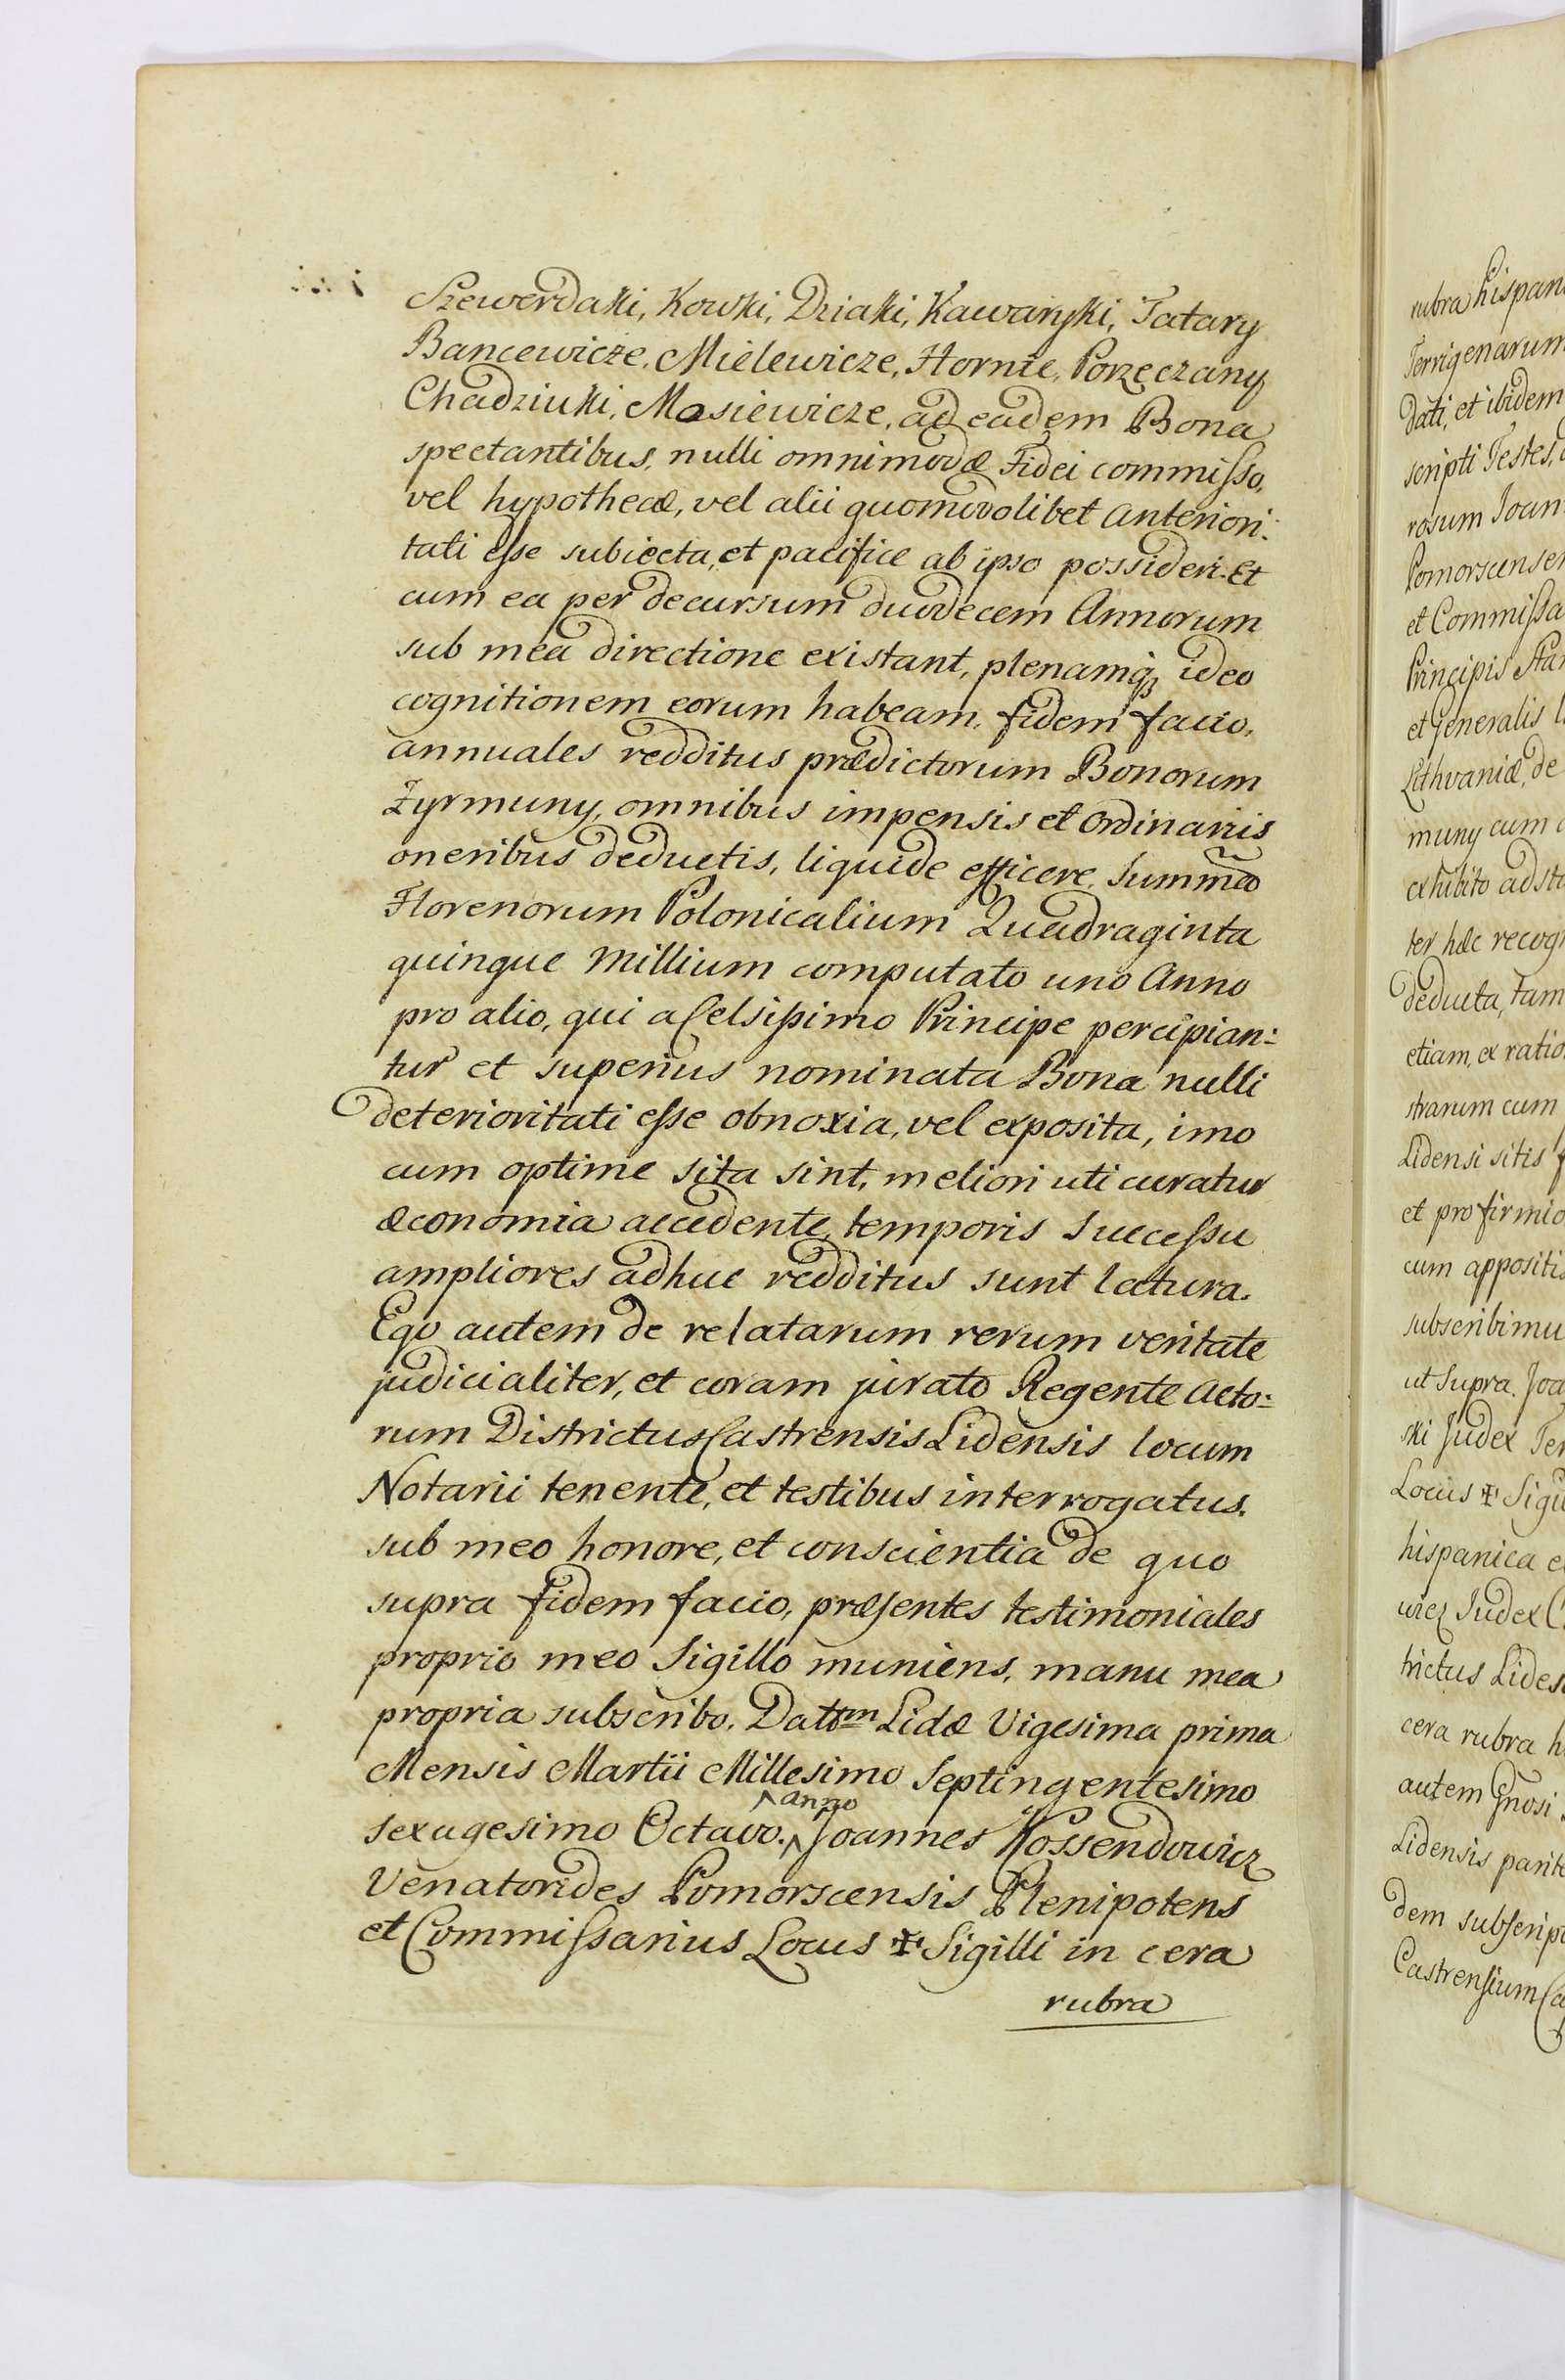 Szewerdaki, Kowki, Dziaki, Kawaryki, Tatary
Bancewicze, Mielewicze, Hornie, Porzeczany
Chadziuki, Mosiewicze, ad eadem Bona
spectantibus, nulli omnimodæ Fidei commisso,
vel hypothecæ, vel alii quomodolibet anteriori-
tati esse subiecta, et pacifice ab ipso possideri. Et
cum ea per decursum duodecem Annorum
sub mea directione existant, plenamq; ideo
cognitionem eorum habeam, fidem facio,
annuales redditus prædictorum Bonorum
Zyrmuny, omnibus impensis et ordinariis
oneribus deductis, liquide efficere, Summã
Florenorum Polonicalium Quadraginta
quinque Millium computato uno Anno
pro alio, qui a Celsissimo Principe percipian-
tur et superius nominata Bona nulli
deterioritati esse obnoxia, vel exposita, imo
cum optime sita sint, meliori uti curatur
æconomia accedente, temporis Successu
ampliores adhuc redditus sunt latura.
Ego autem de relatarum rerum veritate
judicialiter, et coram jurato Regente Acto-
rum Districtus Castrensis Lidensis locum
Notarii tenente, et testibus interrogatus,
sub meo honore, et conscientia de quo
supra fidem facio, præsentes testimoniales
proprio meo Sigillo muniens, manu mea
propria subscribo. Dattm Lidæ Vigesima prima
Mensis Martii Millesimo Septingentesimo
anno
sexagesimo Octavo. Joannes Kossendowicz
Venatorides Pomorscensis Plenipotens
et Commissarius Locus ✠ Sigilli in cera
rubra
rubra hispan
Terrigenarum
dati, et ibidem
scripti Testes,
rosum Joan
Pomorscense
et Commissa
Principis Sta
et Generalis
Lithvaniæ, de
muny cum
exhibito ad st
ter hæc recog
deducta, tam
etiam, ex ratio
strarum cum
Lidensi sitis
et pro firmio
cum appositi
subscribimu
ut Supra. Joa
ski Judex Ter
Locus ✠ Sigi
hispanica
wicz Judex
trictus Lides
cera rubra h
autem Gnosi
Lidensis parit
dem subscrip
Castrensium